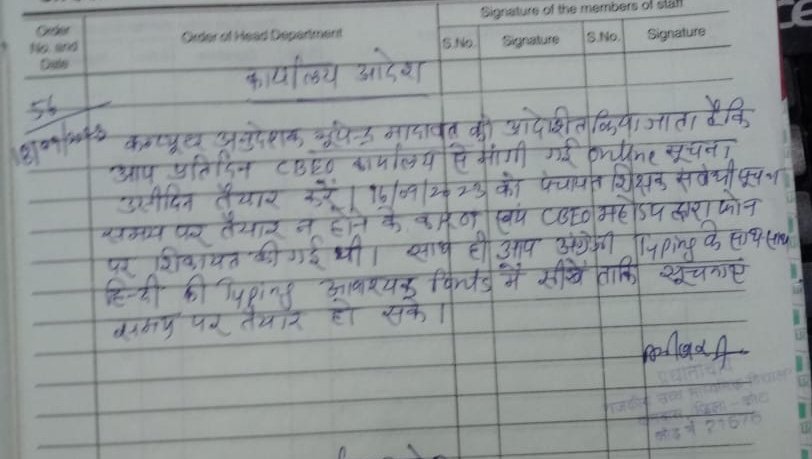 Signature of the members of staff
Order No. and Date
Order of Head Department
S.No. Signature S.No. Signature
कार्यालय आदेश
56
कम्प्यूटर अनुदेशक भूपेन्द्र मादावत को आदेशित किया जाता है कि
आप प्रतिदिन CBEO कार्यालय से मांगी गई online सूचना
उसीदिन तैयार करें। 16/09/2023 को पंचायत शिक्षक संबंधी सूचना
समय पर तैयार न होने के कारण स्वयं CBEO महोदय द्वारा फोन
पर शिकायत की गई थी। साथ ही आप अंग्रेजी Typing के साथ साथ
हिन्दी की Typing आवश्यक में सीखे ताकि सूचनाएं
समय पर तैयार हो सके।